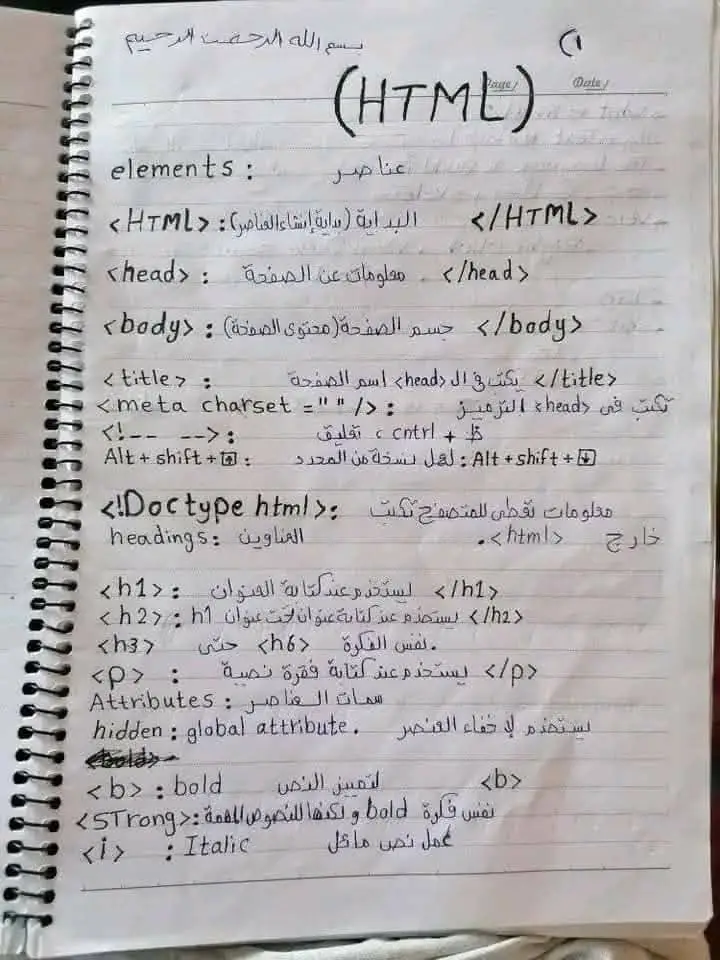 بسم الله الرحمن الرحيم (1
Page/ Date/
(HTML)
elements : عناصر
<HTML> : البداية (بداية إنشاء العناصر) </HTML>
<head> : معلومات عن الصفحة . </head>
<body> : جسم الصفحة (محتوى الصفحة) </body>
<title> : يكتب في ال <head> اسم الصفحة </title>
<meta charset = " " /> : تكتب في <head> الترميز
<!-- --> : تعليق ، cntrl + ظ
Alt + shift + ↑ : لعمل نسخة من المحدد : Alt + shift + ↓
<!Doctype html> : معلومات تعطى للمتصفح تكتب
headings : العناوين خارج <html> .
<h1> : يستخدم عند كتابة العنوان </h1>
<h2> : يستخدم عند كتابة عنوان تحت عنوان h1 </h2>
<h3> حتى <h6> نفس الفكرة .
<p> : يستخدم عند كتابة فقرة نصية </p>
Attributes : سمات العناصر
hidden : global attribute . يستخدم لإخفاء العنصر
<bold>
<b> : bold لتمييز النص <b>
<STrong> : نفس فكرة bold ولكنها للنصوص المهمة
<i> : Italic عمل نص مائل